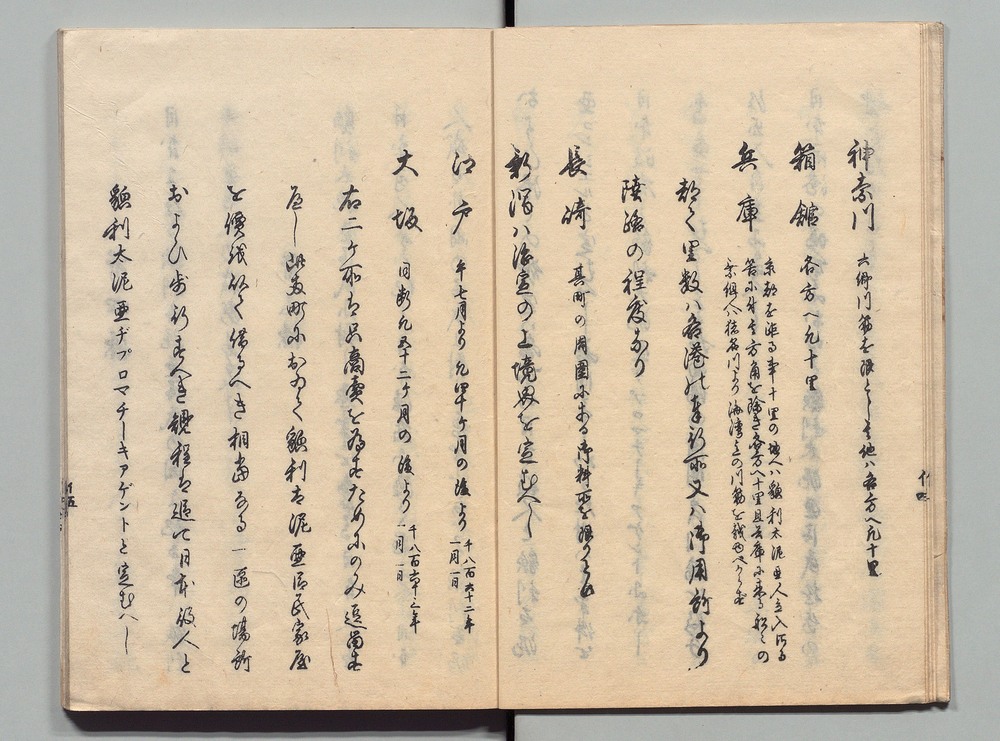 神奈川 六郷川筋を限とし其他ハ各方へ凡十里
箱館 各方へ凡十里
兵庫 京都を距る事十里の地へハ貌利太泥亜人立入さる
筈に付其方角を除き各方へ十里且兵庫に来る船々の
乗組人ハ猪名川より海湾迄の川筋を越ゆへからす
都て里数ハ各港の奉行所又ハ御用所より
陸路の程度なり
長崎 其町の周囲にある御料所を限りとす
新潟ハ治定の上境界を定むへし
江戸 午七月より凡四十ヶ月の後より 千八百六十二年
一月一日
大坂 同断凡五十二ヶ月の後より 千八百六十三年
一月一日
右二ヶ所は只商売を為すためにのみ逗留す
へし此両町において貌利太泥亜臣民家屋
を価銀以て借るへき相当なる一区の場所
およひ歩行すへき規程は追て日本役人と
貌利太泥亜ヂプロマチーキアゲントと定むへし